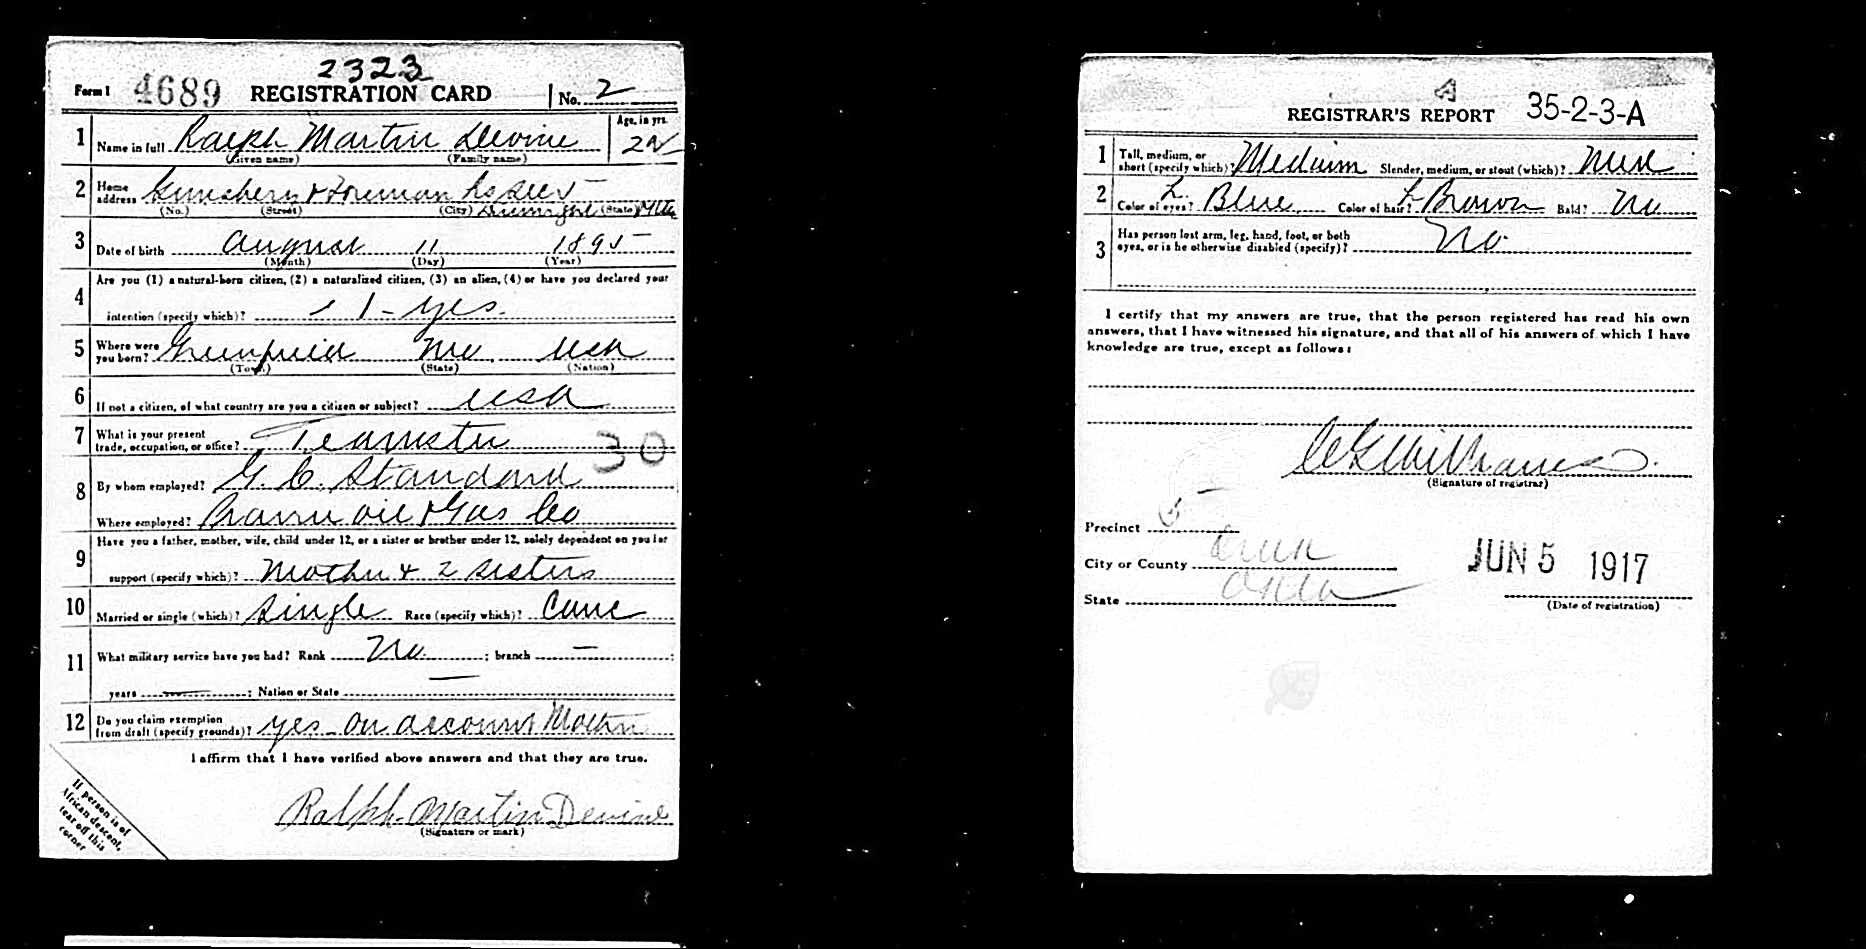 2323
Form 1 4689 REGISTRATION CARD No. 2
1 Name in full Ralph Martin Devine Age, in yrs.
(Given name) (Family name)
2 Home address & Foreman
(No.) (Street) (City) Drumright (State) Okla
3 Date of birth August 11 1895
(Month) (Day) (Year)
4 Are you (1) a natural-born citizen, (2) a naturalized citizen, (3) an alien, (4) or have you declared your
intention (specify which)? 1 - yes.
5 Where were you born? Greenfield Mo. USA
(Town) (State) (Nation)
6 If not a citizen, of what country are you a citizen or subject? USA
7 What is your present trade, occupation, or office? Teamster 30
8 By whom employed? G. C. Standard
Where employed? Prairie Oil & Gas Co
9 Have you a father, mother, wife, child under 12, or a sister or brother under 12, solely dependent on you for
support (specify which)? Mother & 2 sisters
10 Married or single (which)? Single Race (specify which)? Cauc
11 What military service have you had? Rank No. ; branch — ;
years — ; Nation or State —
12 Do you claim exemption from draft (specify grounds)? yes - on account Mother
I affirm that I have verified above answers and that they are true.
Ralph Martin Devine
(Signature or mark)
If person is of
African descent,
tear off this
corner
A
REGISTRAR'S REPORT 35-2-3-A
1 Tall, medium, or short (specify which)? Medium Slender, medium, or stout (which)? Med
2 Color of eyes? L. Blue Color of hair? L Brown Bald? No
3 Has person lost arm, leg, hand, foot, or both
eyes, or is he otherwise disabled (specify)? No.
I certify that my answers are true, that the person registered has read his own
answers, that I have witnessed his signature, and that all of his answers of which I have
knowledge are true, except as follows:
Williams
(Signature of registrar)
Precinct 5
City or County
State Okla
JUN 5 1917
(Date of registration)